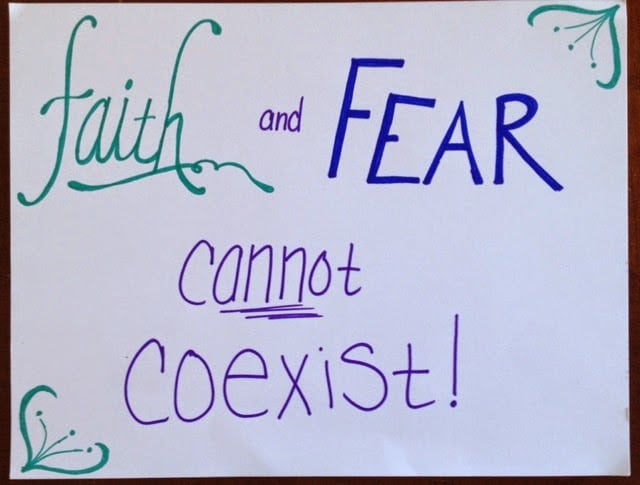 faith and FEAR
cannot
coexist!